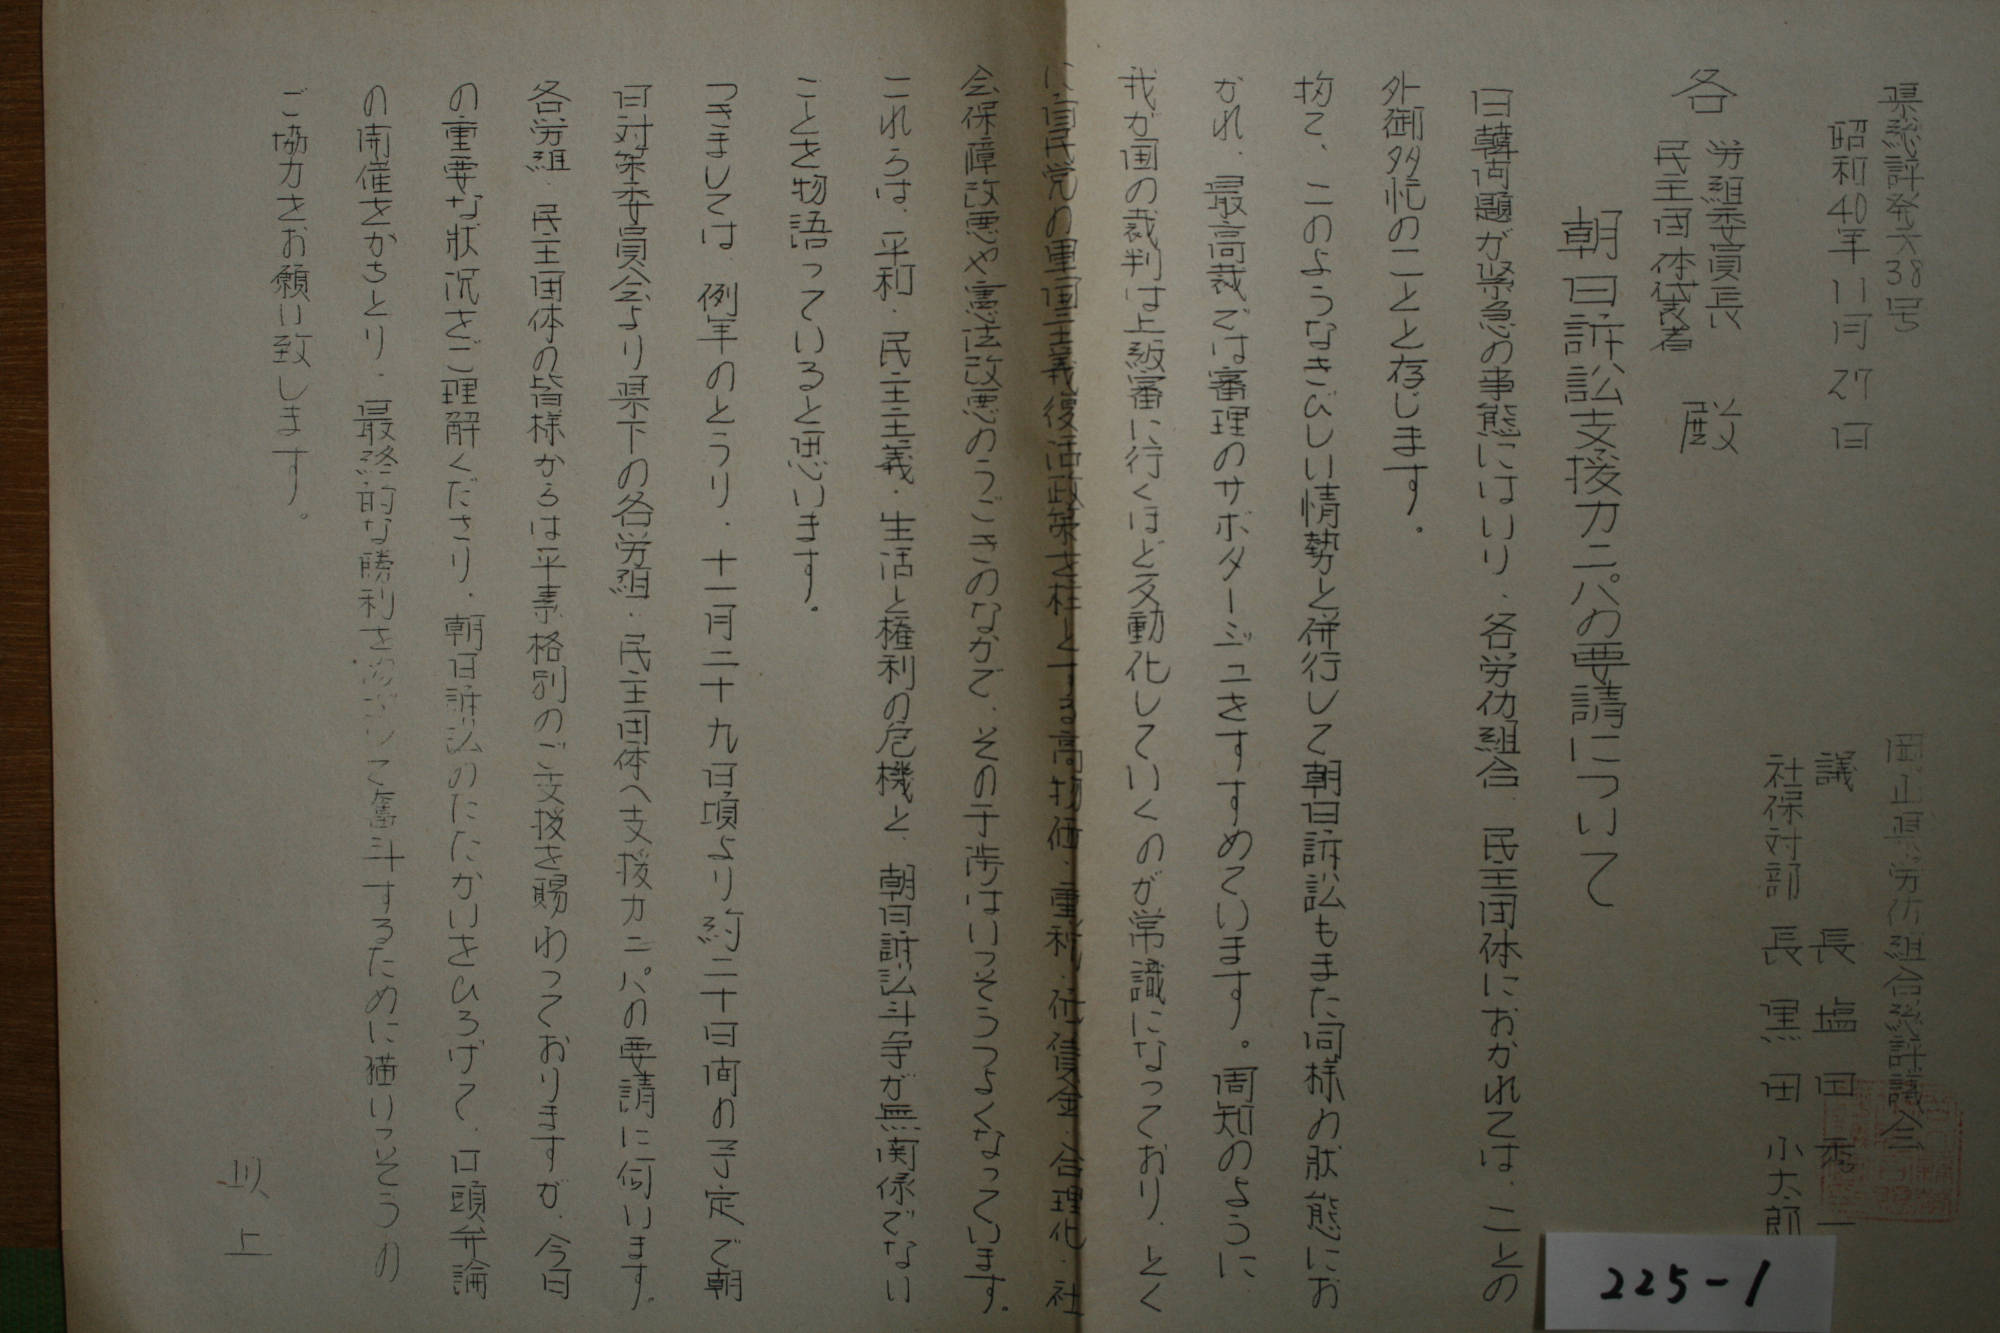 県総評発六38号
昭和40年11月27日
岡山県労仂組合総評議会
議長 塩田秀一
社保対部長 黒田小太郎
各 労組委員長
民主団体代表者 殿
朝日訴訟支援カニパの要請について
日韓問題が緊急の事態にはいり、各労仂組合、民主団体におかれては、ことの
外御多忙のことと存じます。
扨て、このようなきびしい情勢と併行して朝日訴訟もまた同様の状態にお
かれ、最高裁では審理のサボタージュをすすめています。周知のように
我が国の裁判は上級審に行くほど反動化していくのが常識になっており、とく
に自民党の軍国主義復活政策を柱とする高物価・重税・低賃金・合理化・社
会保障改悪や憲法改悪のうごきのなかで、その干渉はいっそうつよくなっています。
これらは、平和・民主主義・生活と権利の危機と、朝日訴訟斗争が無関係でない
ことを物語っていると思います。
つきましては 例年のとうり、十一月二十九日頃より約二十日間の予定で朝
日対策委員会より県下の各労組・民主団体へ支援カニパの要請に伺います。
各労組・民主団体の皆様からは平素格別のご支援を賜わっておりますが、今日
の重要な状況をご理解くださり、朝日訴訟のたたかいをひろげて、口頭弁論
の開催をかちとり、最終的な勝利を めざして奮斗するために猶いっそうの
ご協力をお願い致します。
以上
225-1